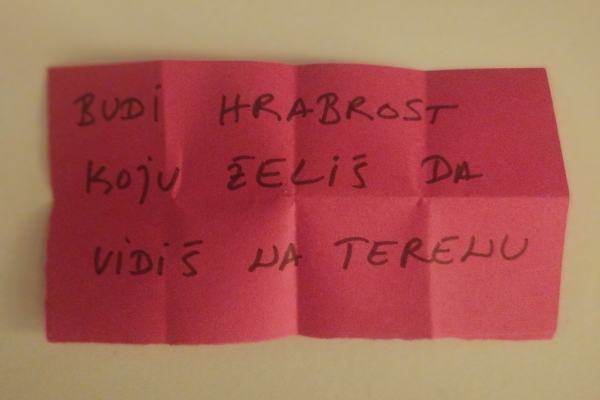 BUDI HRABROST
KOJU ŽELIŠ DA
VIDIŠ NA TERENU